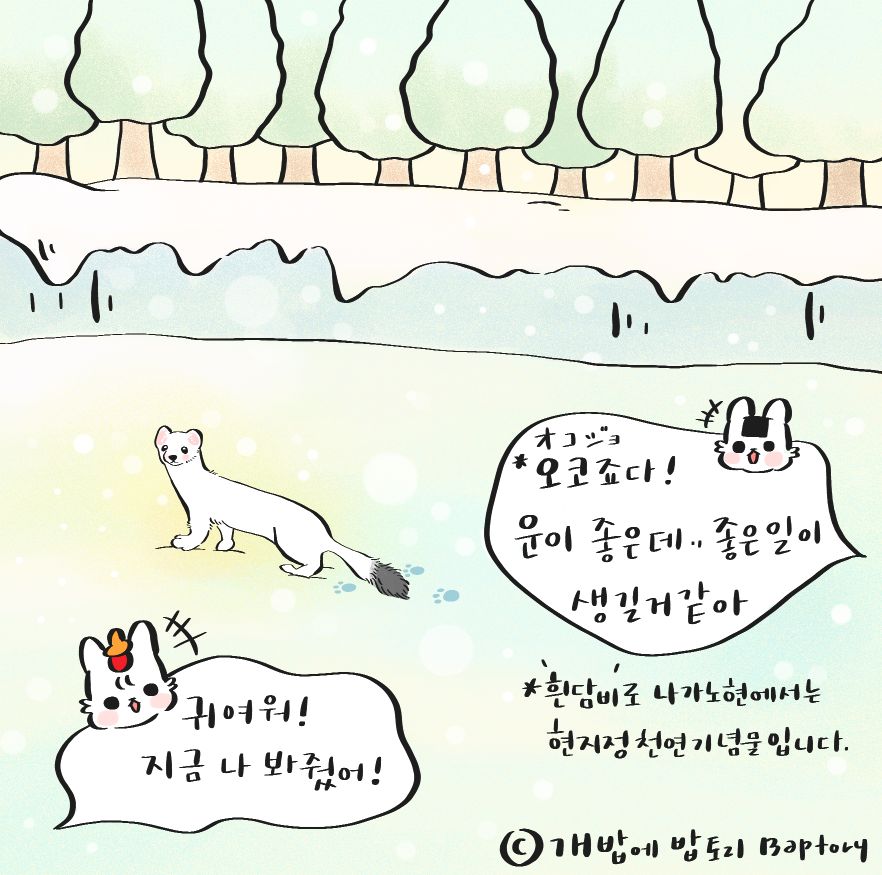 オコジョ
*오코죠다!
운이 좋은데.. 좋은일이
생길거같아
귀여워!
지금 나 봐줬어!
*'흰담비'로 나가노현에서는
현지정천연기념물입니다.
©개밥에 밥토리 Baptory